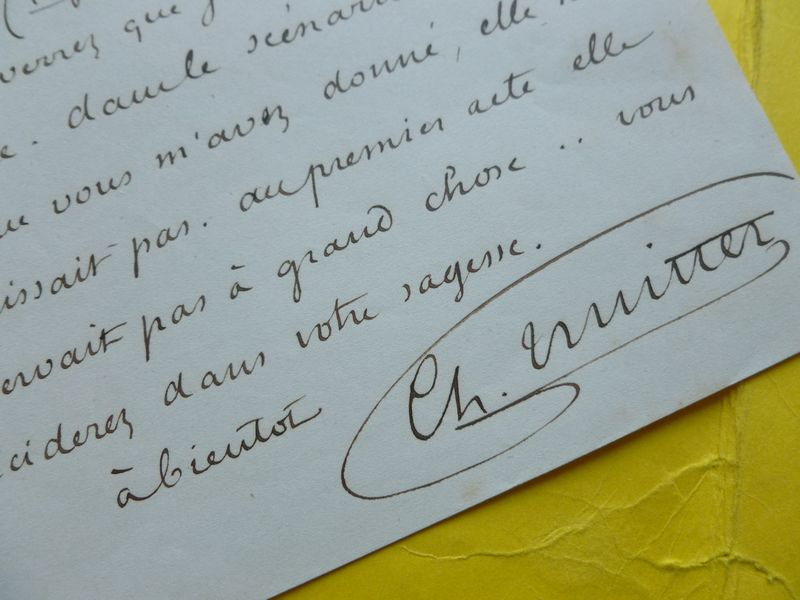 verrez que
e. dans le scénario
vous m'avez donné, elle
issait pas. au premier acte elle
ervait pas à grand chose .. vous
ciderez dans votre sagesse.
à bientot
Ch. Nuitter